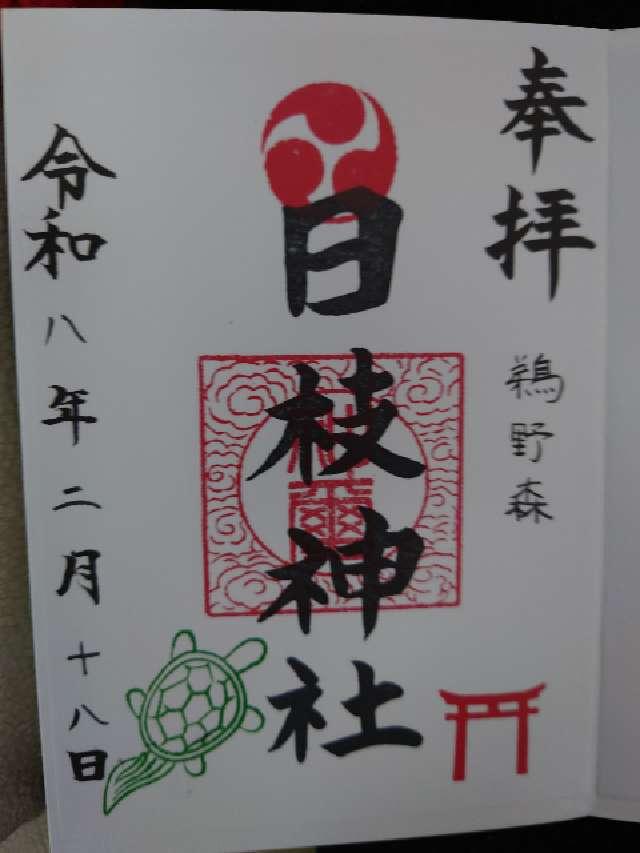 奉拝
鵜野森
日枝神社
令和八年二月十八日